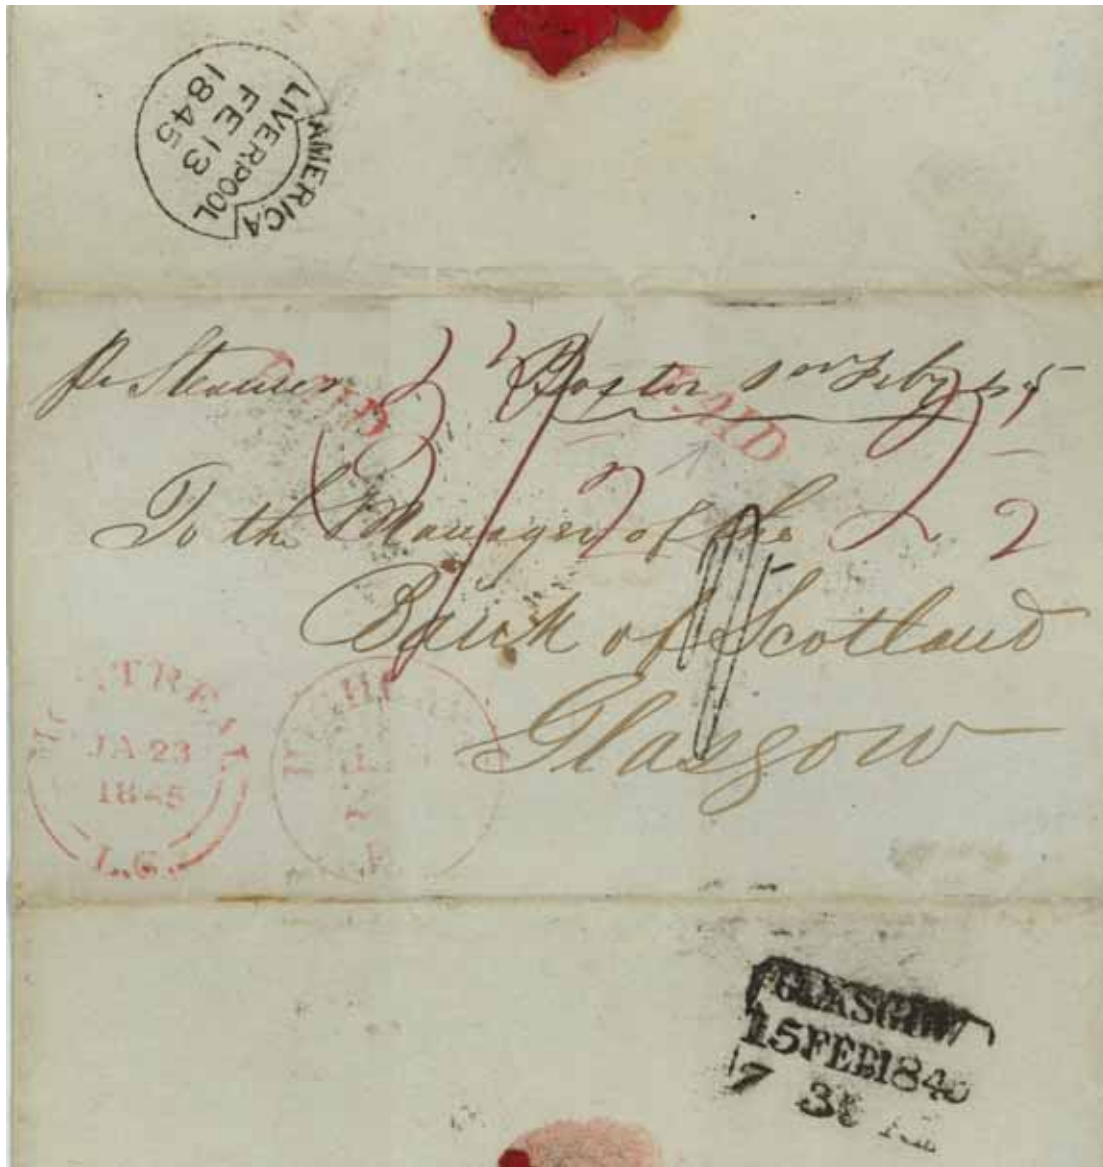 AMERICA
LIVERPOOL
FE 13
1845
pr Steamer Boston 1st Feby 45
PAID
To the Manager of the
2
Bank of Scotland
Glasgow
JA 23
1845
L.C.
GLASGOW
15 FEB 184
7